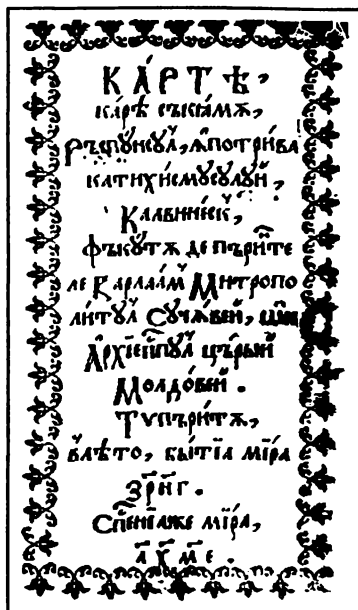 КА́РТѢ,
ка́рѣ съкїамѫ,
Ръспꙋнсꙋл, ꙟпотри́ва
катихи́смꙋсꙋлꙋй,
Калвине́ск,
фъкꙋтѫ де пъри́нте
ле Варлаа́м Митропо
ли́тꙋл Сꙋчѧ́вей, ши
А҆рхїепи́пꙋл църы́й
Молдо́вей.
Тѵпъри́тѫ,
влѣто, бытїа ми́ра
҂зрнг.
Сп҃енїѧже ми́ра,
҂а҃хме.